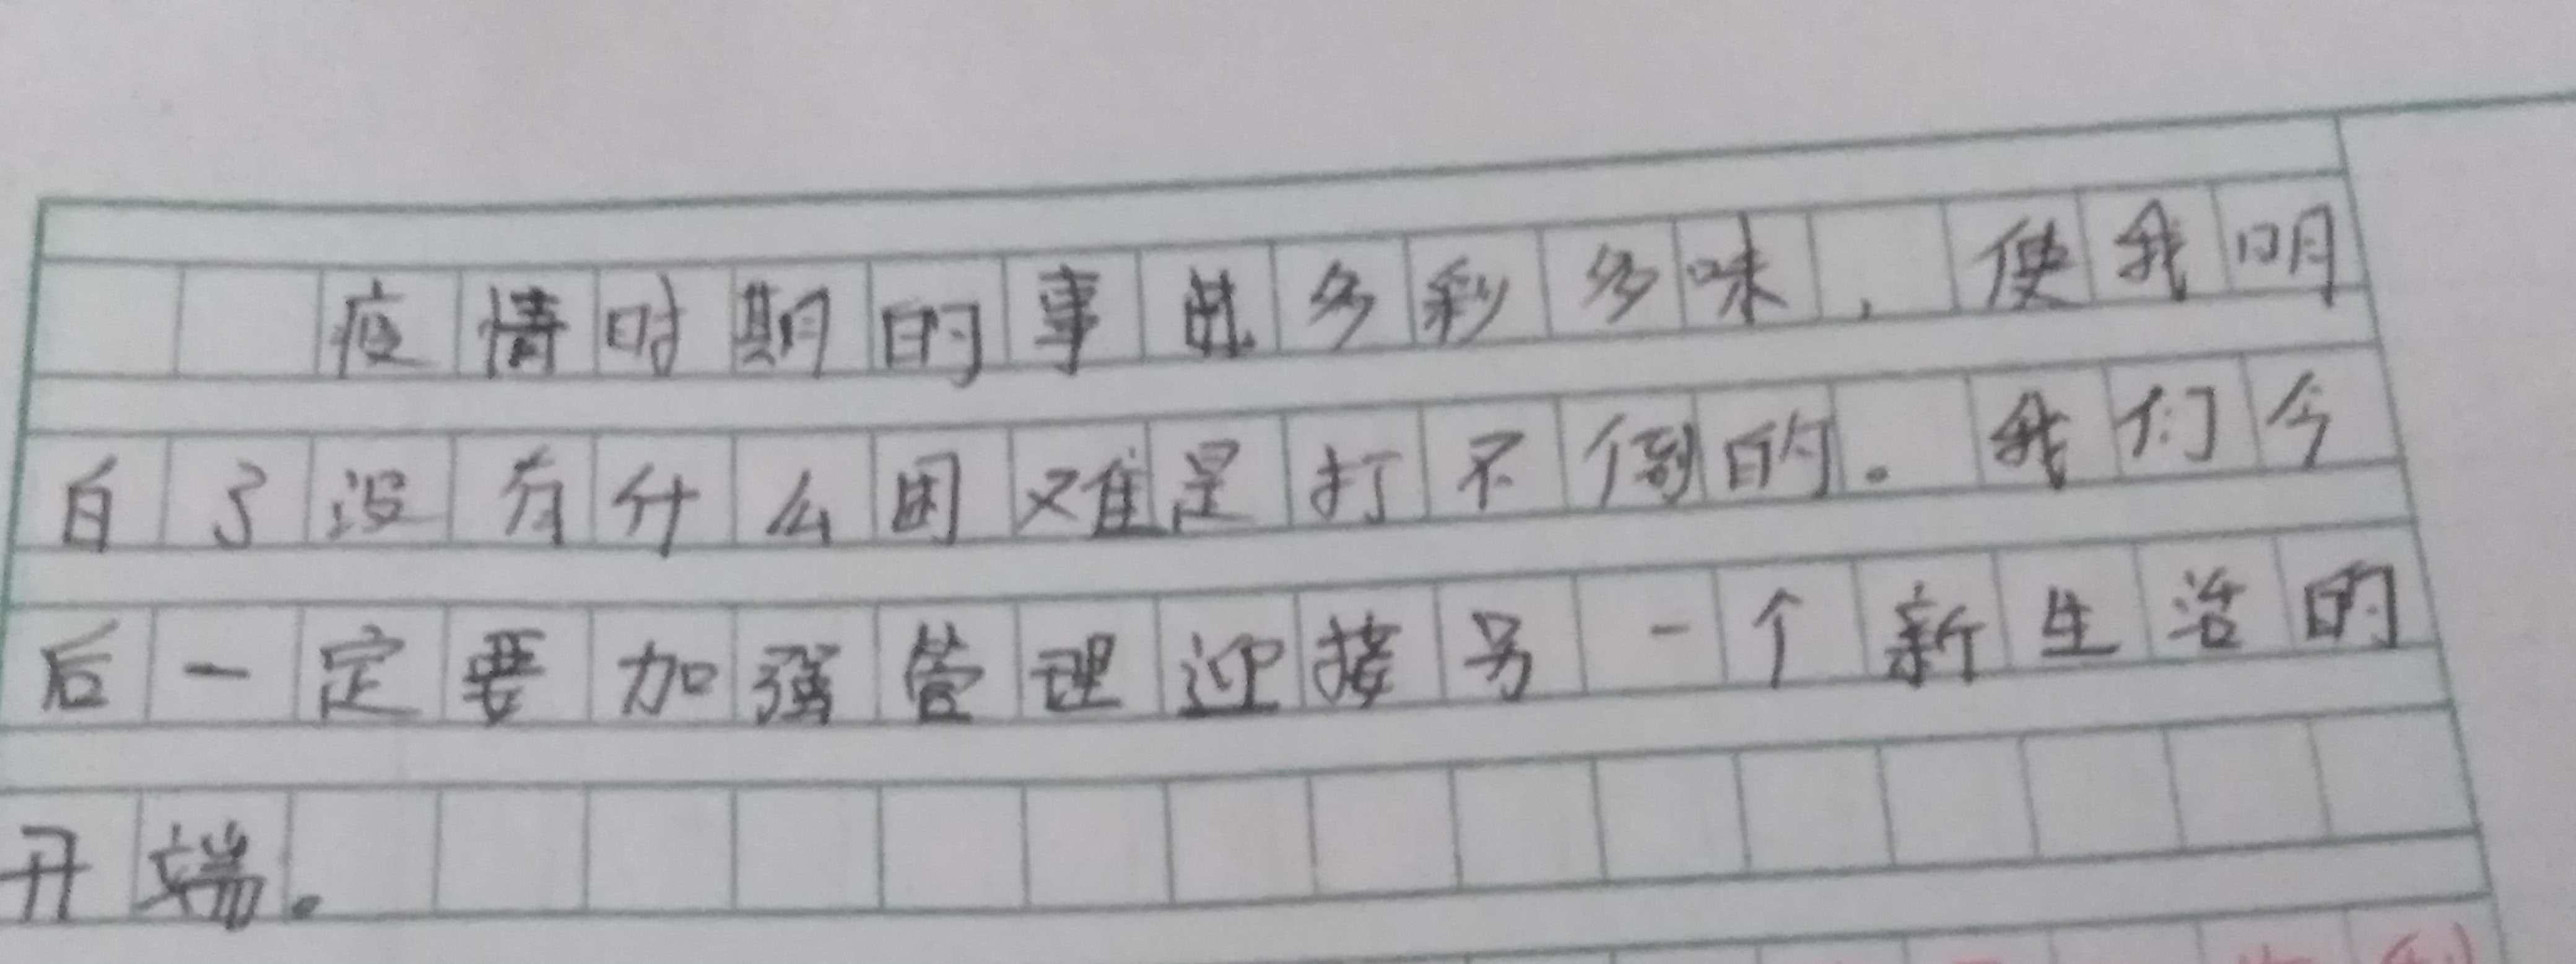 疫情时期的事多彩多味，使我明
白了没有什么困难是打不倒的。我们今
后一定要加强管理迎接另一个新生活的
开端。